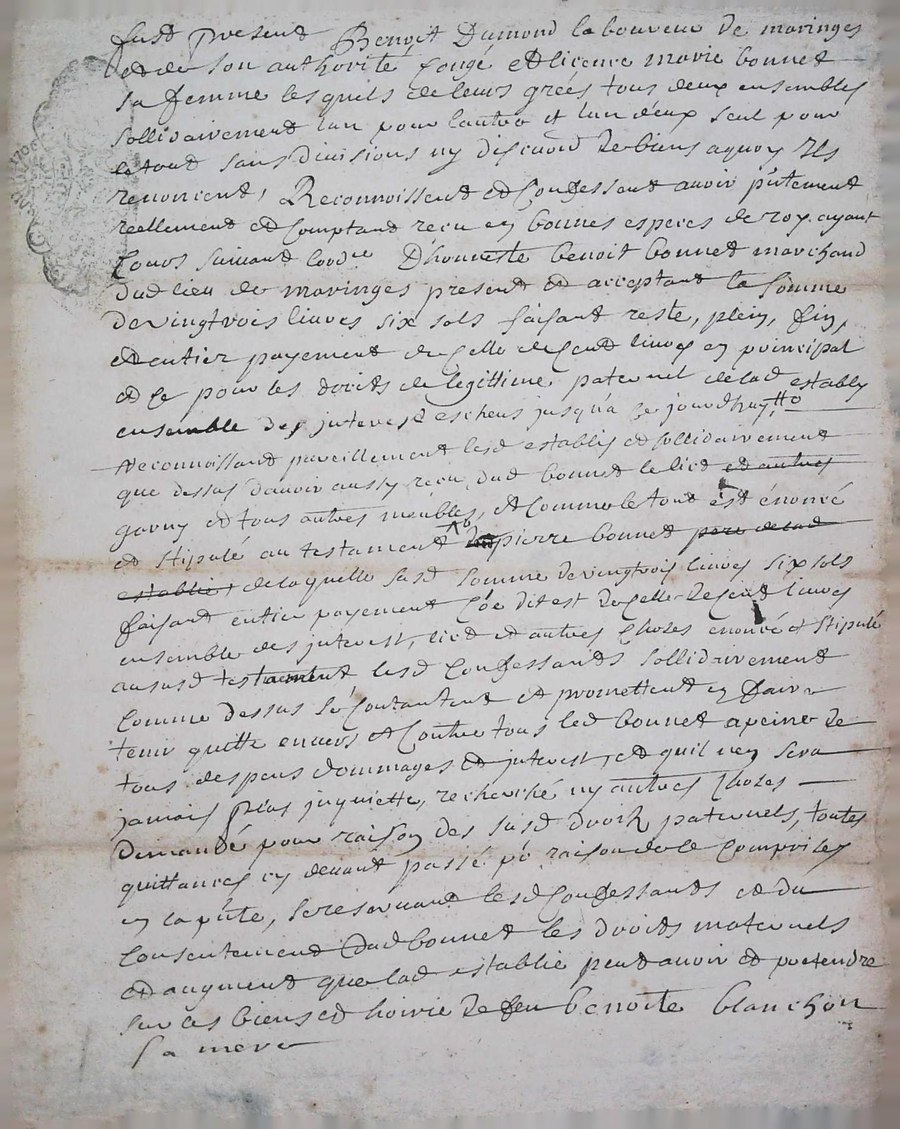 fust present Benoit Dumond laboureur de maringes
et de son authorité congé et licence marie bonnet
sa femme lesquels de leurs grées tous deux ensembles
sollidairement lun pour lautre et lun deux seul pour
le tout sans divisions ny de biens a quoy ils
renoncent, Reconnoissent et Confessent avoir p̃ntement
reellement et Comptand receu en bonnes especes de roy ayant
Cours suivant lordre D'honneste benoit bonnet marchand
dud lieu de maringes present et acceptant la somme
de vingtrois livres six sols faisant reste, plein, fin,
et entier payement de Celle de Cent livres en principal
et Ce pour les droits de legittime paternel de lad establie
ensemble des interest escheus jusqua ce jourdhuy,
Reconnoissand pareillement lesd establis et sollidairement
que dessus davoir aussy receu dud bonnet le lict et autres
garny et tous autres meubles, et Comme le tout est énoncé
et stipulé au testament pierre bonnet pere de lad
establie, de laquelle susd somme de vingtrois livres six sols
faisant entier payement Cõe dit est de Celle de Cent livres
ensemble des interest, lict et autres Choses enoncé et stipulé
au susd testament lesd Confessands sollidairement
Comme dessus se Contantent et promettent en faire
tenir quitte envers et Contre tous led bonnet a peine de
tous despens dommages et interest, et quil n'en sera
jamais plus inquietté, recherché ny autres Choses
Demandé pour raison des susd droits paternels, toutes
quittances cy devant passé p̃r raison de Ce Comprises
en la p̃nte, se reservant lesd Confessands et du
Consentement dud bonnet les droits maternels
et augment que lad establie peut avoir et pretendre
sur les biens et hoirie de feu benoite blanchon
sa mere